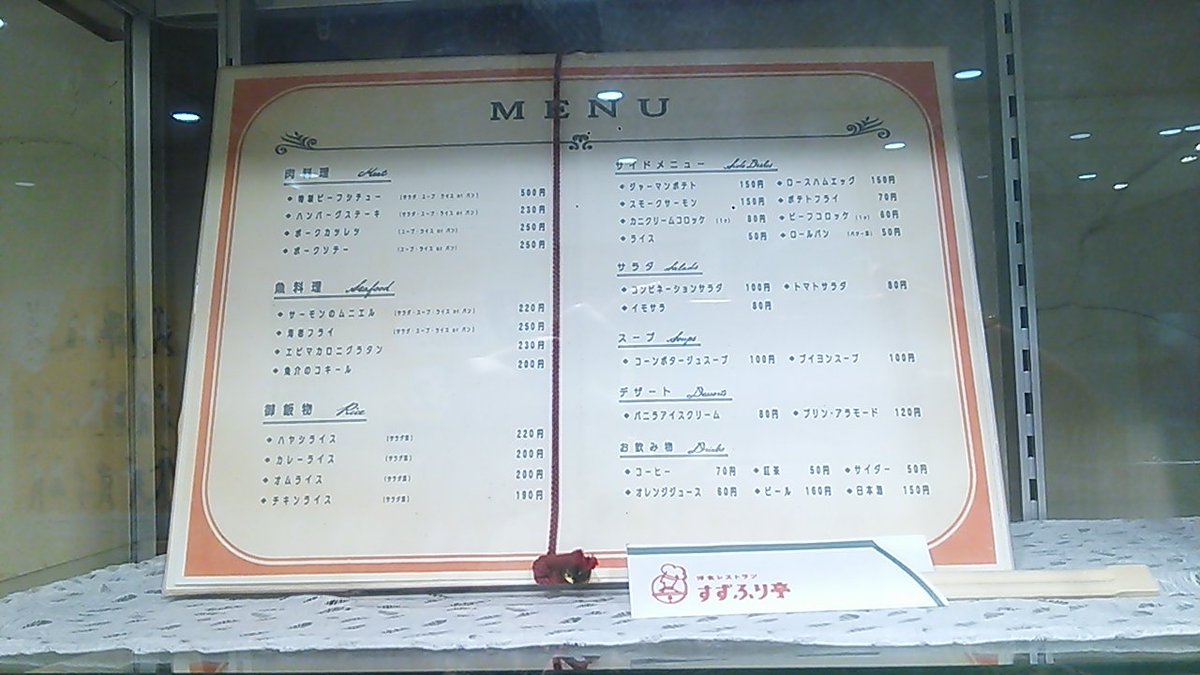 MENU
肉料理 Meat
・特製ビーフシチュー (サラダ・スープ・ライス or パン) 500円
・ハンバーグステーキ (サラダ・スープ・ライス or パン) 230円
・ポークカツレツ (スープ・ライス or パン) 250円
・ポークソテー (スープ・ライス or パン) 250円
魚料理 Seafood
・サーモンのムニエル (サラダ・スープ・ライス or パン) 220円
・海老フライ (サラダ・スープ・ライス or パン) 250円
・エビマカロニグラタン 230円
・魚介のコキール 200円
御飯物 Rice
・ハヤシライス (サラダ付) 220円
・カレーライス (サラダ付) 200円
・オムライス (サラダ付) 200円
・チキンライス (サラダ付) 190円
サイドメニュー Side Dishes
・ジャーマンポテト 150円 ・ロースハムエッグ 150円
・スモークサーモン 150円 ・ポテトフライ 70円
・カニクリームコロッケ (1ヶ) 80円 ・ビーフコロッケ (1ヶ) 60円
・ライス 50円 ・ロールパン (バター付) 50円
サラダ Salads
・コンビネーションサラダ 100円 ・トマトサラダ 80円
・イモサラ 80円
スープ Soups
・コーンポタージュスープ 100円 ・ブイヨンスープ 100円
デザート Desserts
・バニラアイスクリーム 80円 ・プリン・アラモード 120円
お飲み物 Drinks
・コーヒー 70円 ・紅茶 50円 ・サイダー 50円
・オレンジジュース 60円 ・ビール 160円 ・日本酒 150円
洋食レストラン
すずふり亭